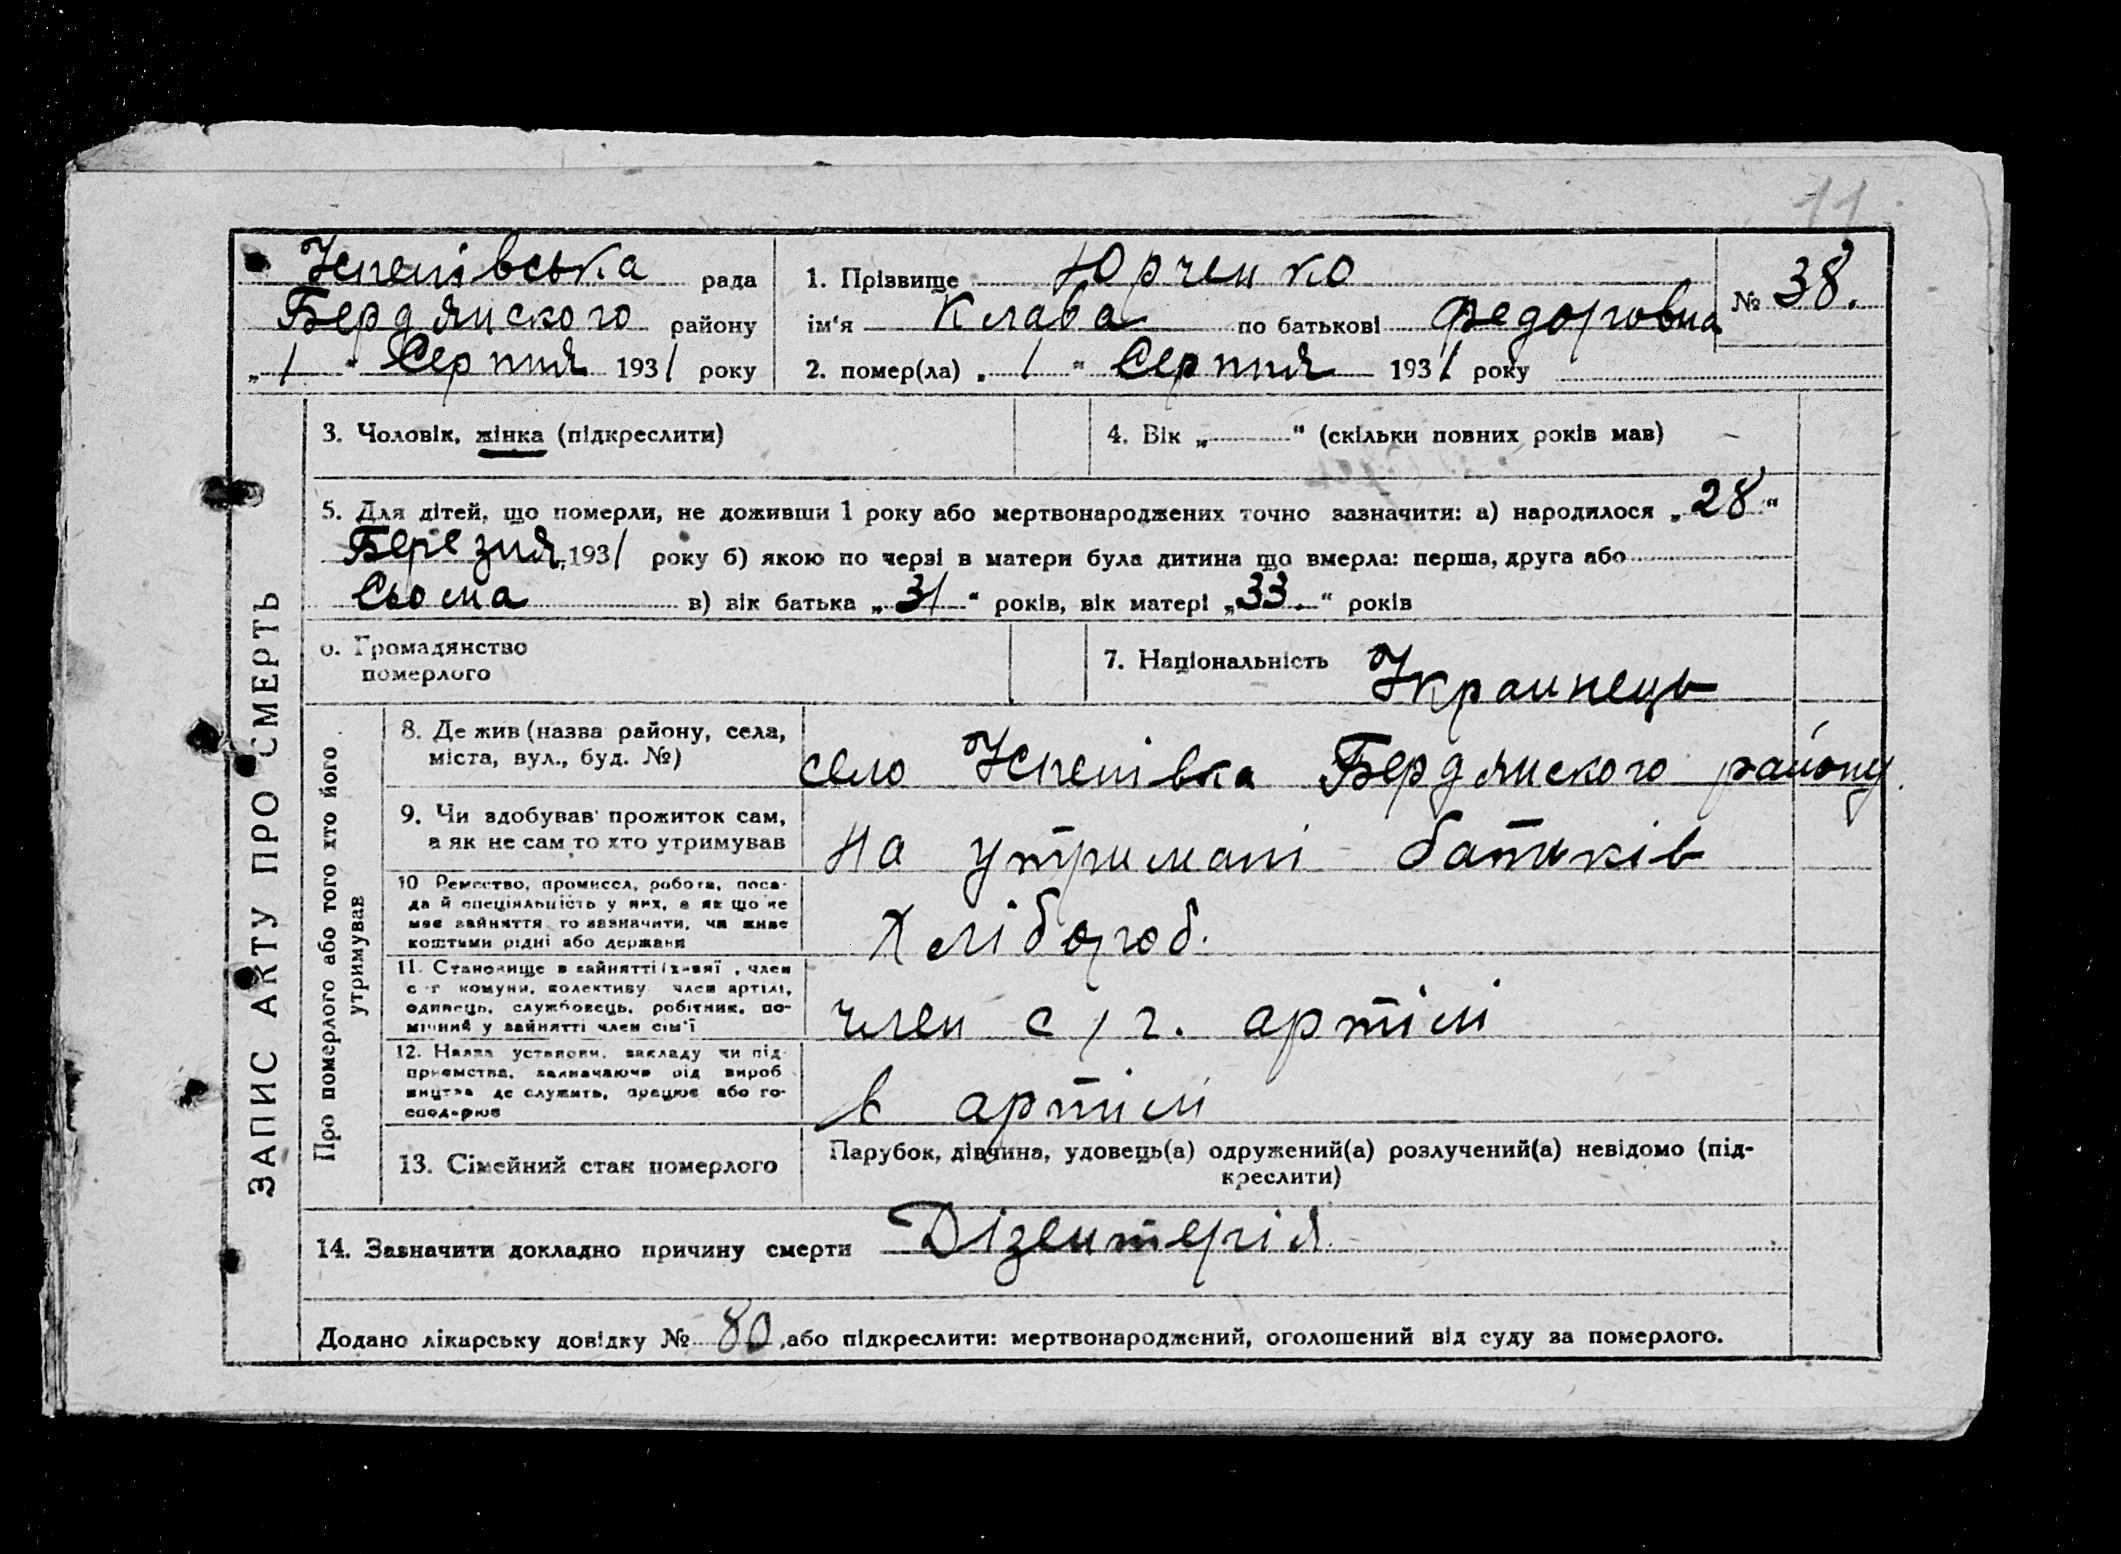 11
Успенівська рада
Бердянского району
„ 1 " Серпня 1931 року
1. Прізвище Юрченко
ім'я Клава по батькові Федоровна
2. помер(ла) „ 1 " Серпня 1931 року
№ 38.
ЗАПИС АКТУ ПРО СМЕРТЬ
3. Чоловік, жінка (підкреслити)
4. Вік „ " (скільки повних років мав) –
5. Для дітей, що померли, не доживши 1 року або мертвонароджених точно зазначити: а) народилося „28"
Березня 1931 року б) якою по черзі в матери була дитина що вмерла: перша, друга або
Сьома в) вік батька „31" років, вік матері „33." років
6. Громадянство
померлого
7. Національність Украинець
Про померлого або того хто його
утримував
8. Де жив (назва району, села,
міста, вул., буд. №)
село Успенівка Бердянского району.
9. Чи здобував прожиток сам,
а як не сам то хто утримував
На утримані батьків
10 Ремество, промисел, робота, поса-
да й спеціяльність у них, а як що не
має зайняття то зазначити, чи живе
коштами рідні або держави
Хлібороб.
11. Становище в зайнятті (хазяї, член
с-г комуни, колективу член артілі,
одинець, службовець, робітник, по-
мічний у зайнятті член сім'ї
член с/г. артілі
12. Назва установи, закладу чи під-
приємства, зазначаючи рід вироб
ництва де служить, працює або го-
сподарює
в артілі
13. Сімейний стан померлого
Парубок, дівчина, удовець(а) одружений(а) розлучений(а) невідомо (під-
креслити)
14. Зазначити докладно причину смерти Дізентерія
Додано лікарську довідку № 80, або підкреслити: мертвонароджений, оголошений від суду за померлого.